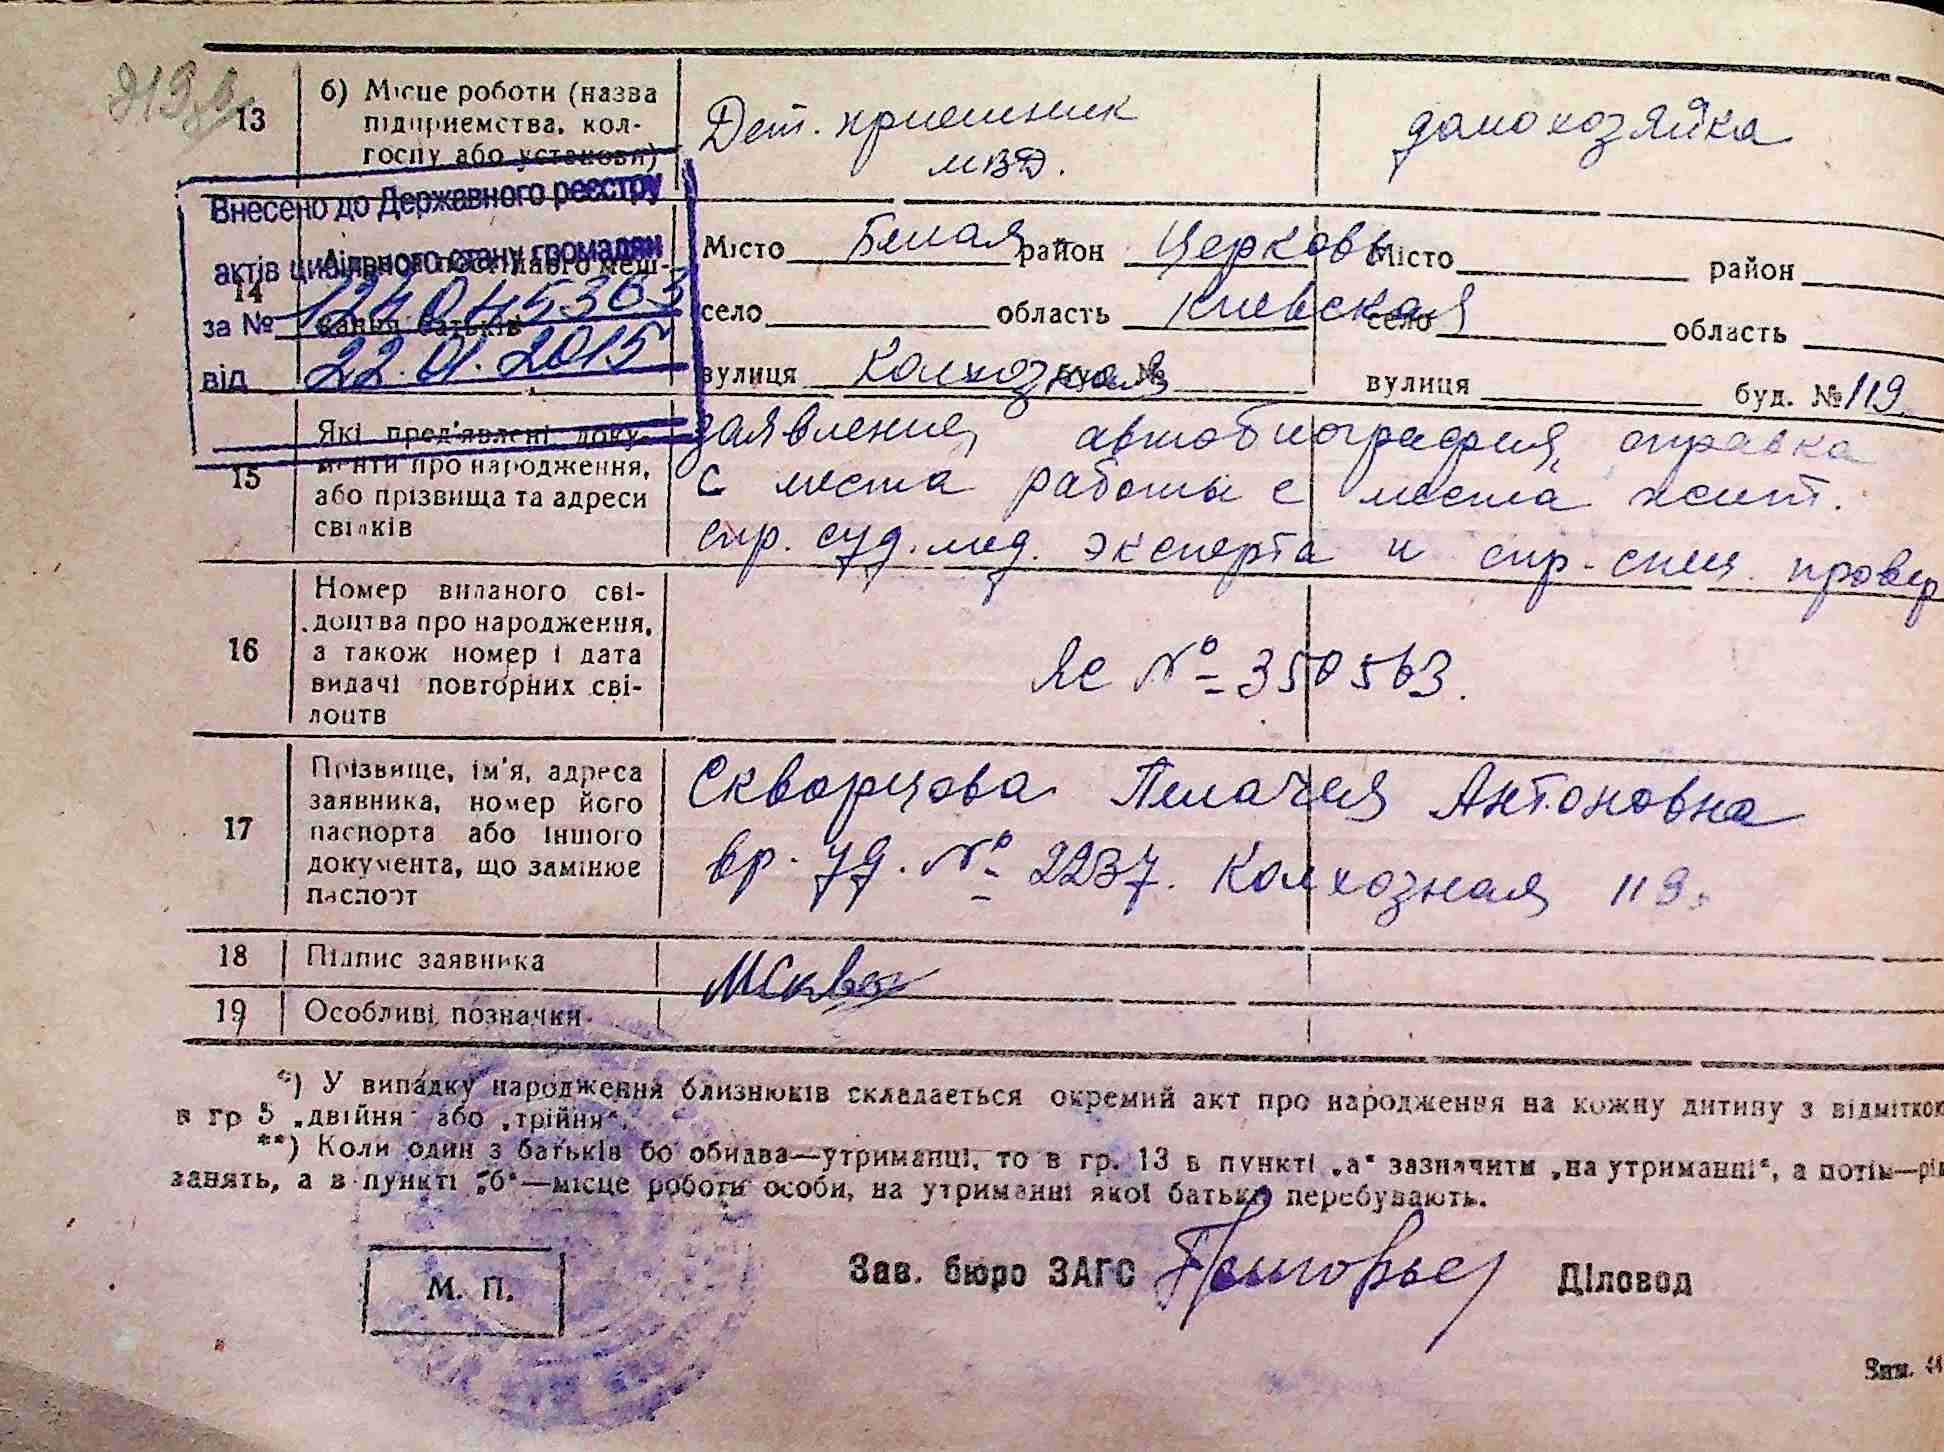 13 б) Місце роботи (назва підприємства, колгоспу або установи) Дет. приемник МВД. домохозяйка
Внесено до Державного реєстру
актів цивільного стану громадян
за № 12404 5363
від 22.01.2015
14 постійного меш-
кання батьків
Місто Белая район Церковь Місто район
село область Киевская село область
вулиця Колхозная буд. № вулиця буд. № 119.
15 Які пред'явлені доку-
менти про народження,
або прізвища та адреси
свідків
заявление, автобиография, справка
с места работы с места жит.
спр. суд. мед. эксперта и спр. спец. провер
16 Номер виданого сві-
доцтва про народження,
а також номер і дата
видачі повторних сві-
доцтв
ЯС № 350563.
17 Прізвище, ім'я, адреса
заявника, номер його
паспорта або іншого
документа, що замінює
паспорт
Скворцова Антоновна
вр. уд. № 2237. Колхозная 119.
18 Підпис заявника
19 Особливі позначки
*) У випадку народження близнюків складається окремий акт про народження на кожну дитину з відміткою
в гр 5 „двійня" або „трійня".
**) Коли один з батьків бо обидва—утриманці, то в гр. 13 в пункті „а" зазначити „на утриманні", а потім—рід
занять, а в пункті „б"—місце роботи особи, на утриманні якої батько перебувають.
М. П.
Зав. бюро ЗАГС Діловод
Зам.